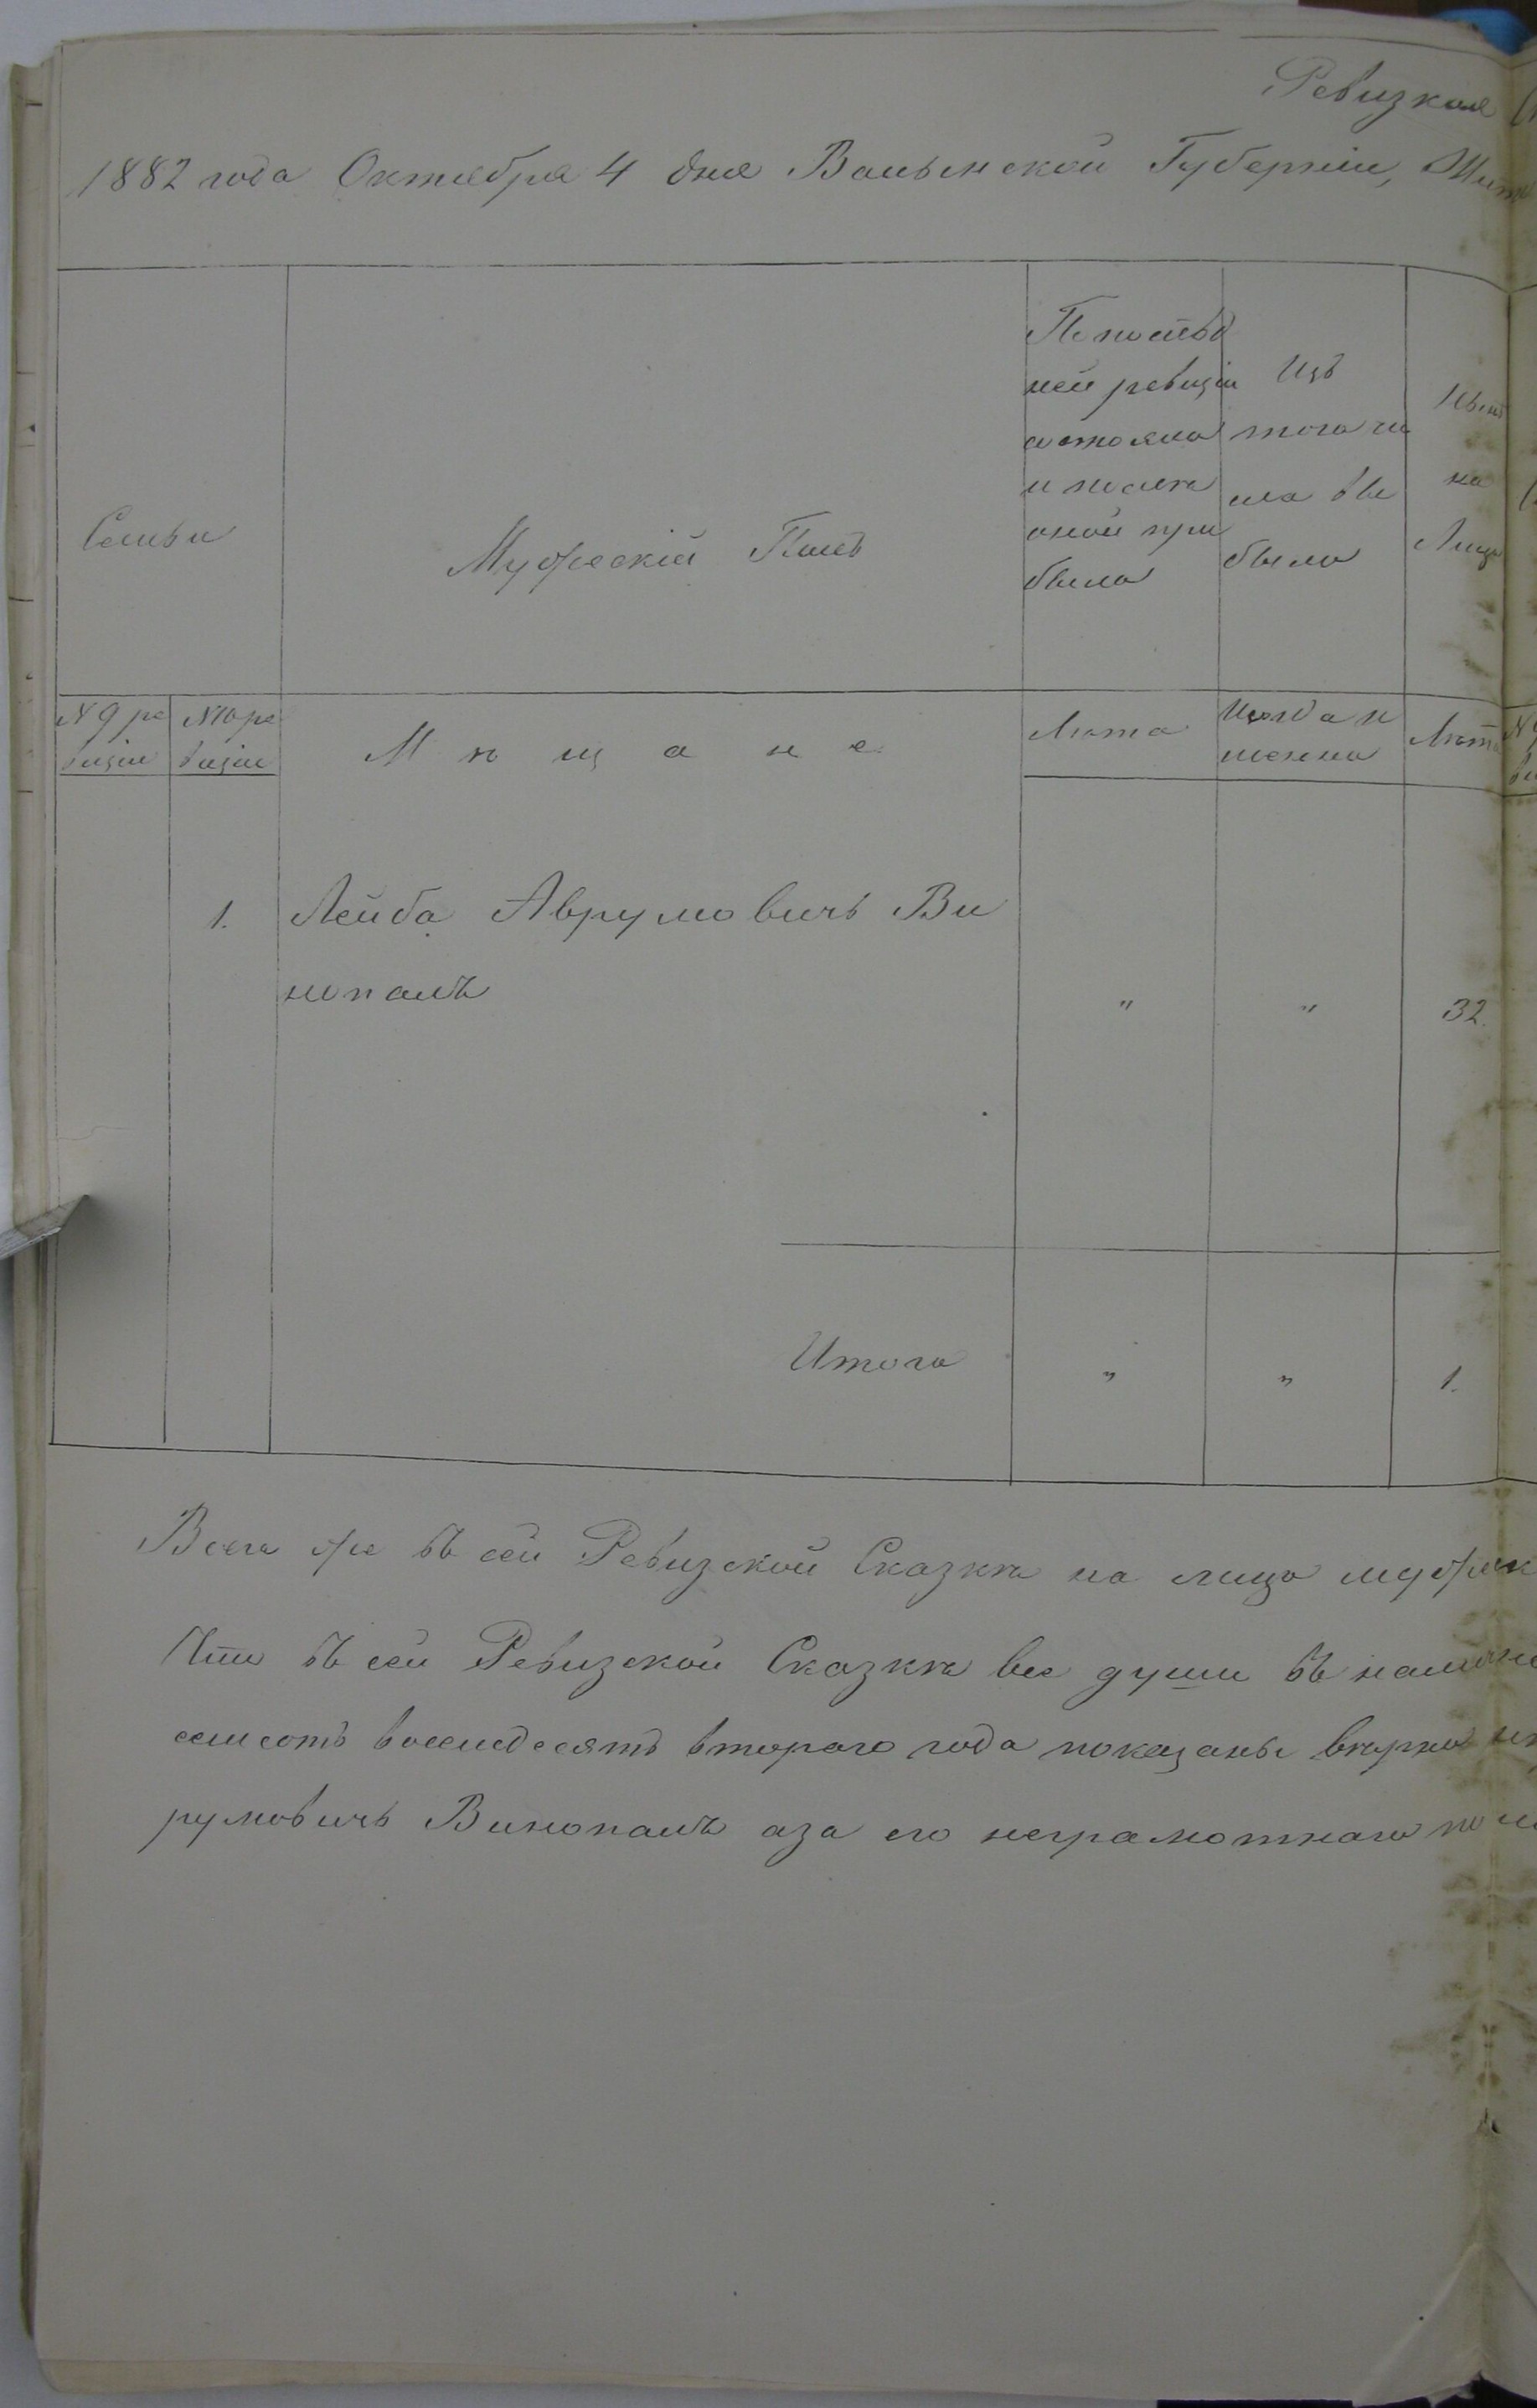 Ревизкая
1882 года Октября 4 дня Волынской Губерніи, Жит
Семьи
Мужескій Полъ
По послѣд
ней ревизіи
состояло
и послѣ
оной при
было
Изъ
того чи
сла вы
было
Нынѣ
на
Лицо
№ 9 ре
визіи
№ 10 ре
визіи
Мѣщане
Лѣта
Когда и
менно
Лѣта
1. Лейба Аврумовичъ Ви
нопалъ " " 32.
Итого " " 1.
Всего же въ сей Ревизской Сказкѣ на лицо мужеск
Что въ сей Ревизской Сказкѣ все души въ налич
семсотъ восемдесятъ втораго года показаны вѣрно
румовичъ Винопалъ аза его неграмотнаго по